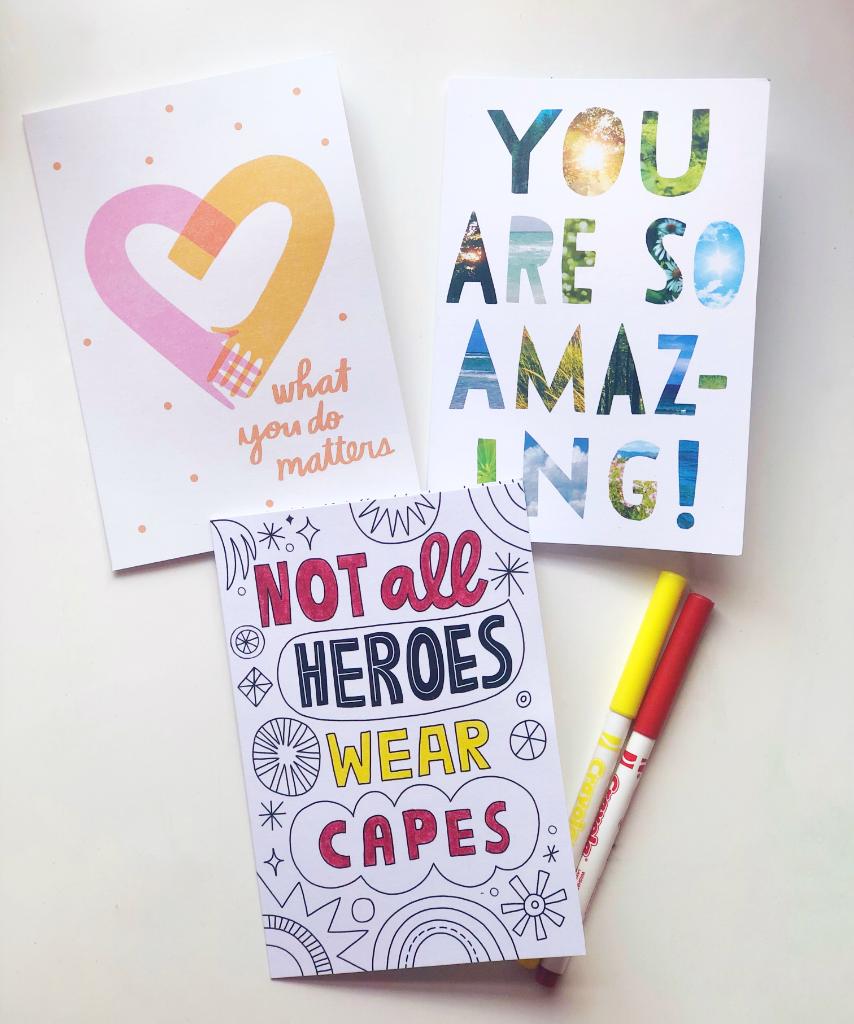 what
you do
matters
YOU
ARE SO
AMAZ-
ING!
NOT all
HEROES
WEAR
CAPES
Crayola
Crayola